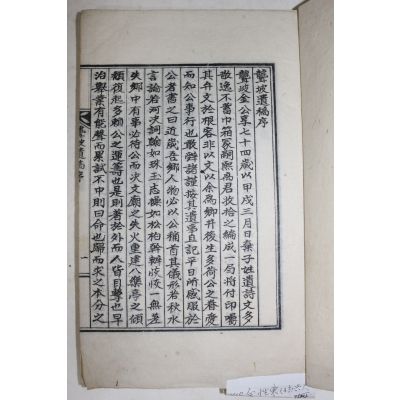 聾坡遺稿序
聾坡金公享七十四歲以甲戌三月日棄子姓遺詩文多
散逸不蓄巾箱冢嗣熙爲君收拾之編成一局將付印囑
其弁文於根容非以文以余爲鄉幷後生多荷公之眷愛
而知公事行也敢辭諸謹按其遺事且記平日所感服于
公者書之曰近歲吾鄉人物必以公稱首其儀形若秋水
言論若河決詞翰如珠玉志操如松柏幹辦恢恢一無差
失鄉中有事必待公而決文廟之失火重建八樂亭之傾
頹復起多賴公之運籌也是則著於外而人皆目擊也早
治擧業有能聲而累試不中則曰命也歸而求之本分之
聾坡遺稿序
一